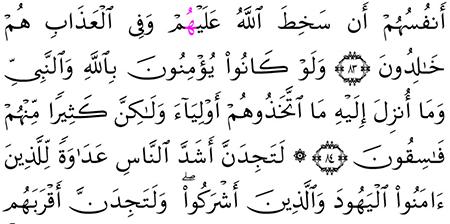 أَنفُسُهُمْ أَن سَخِطَ ٱللَّهُ عَلَيْهُمْ وَفِى ٱلْعَذَابِ هُمْ
خَـٰلِدُونَ ۝٨٣ وَلَوْ كَانُوا۟ يُؤْمِنُونَ بِٱللَّهِ وَٱلنَّبِىِّ
وَمَآ أُنزِلَ إِلَيْهِ مَا ٱتَّخَذُوهُمْ أَوْلِيَآءَ وَلَـٰكِنَّ كَثِيرًا مِّنْهُمْ
فَـٰسِقُونَ ۝٨٤ ۞ لَتَجِدَنَّ أَشَدَّ ٱلنَّاسِ عَدَٰوَةً لِّلَّذِينَ
ءَامَنُوا۟ ٱلْيَهُودَ وَٱلَّذِينَ أَشْرَكُوا۟ ۖ وَلَتَجِدَنَّ أَقْرَبَهُم